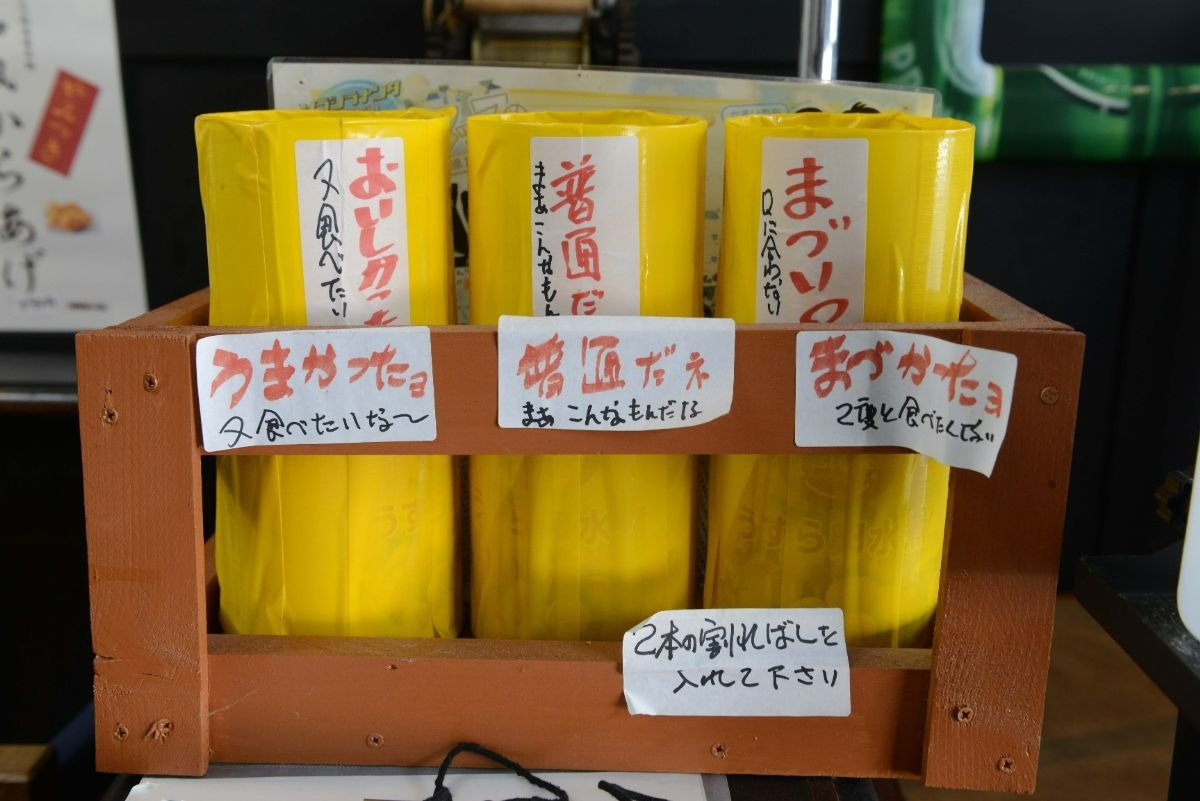 おいしかった
又食べたい
普通だ
まあこんなもん
まづい
口に合わない
うまかったョ
又食べたいな〜
普通だネ
まあこんなもんだな
まづかったョ
2度と食べたくない
2本の割ればしを
入れて下さい
からあげ
うすら
水